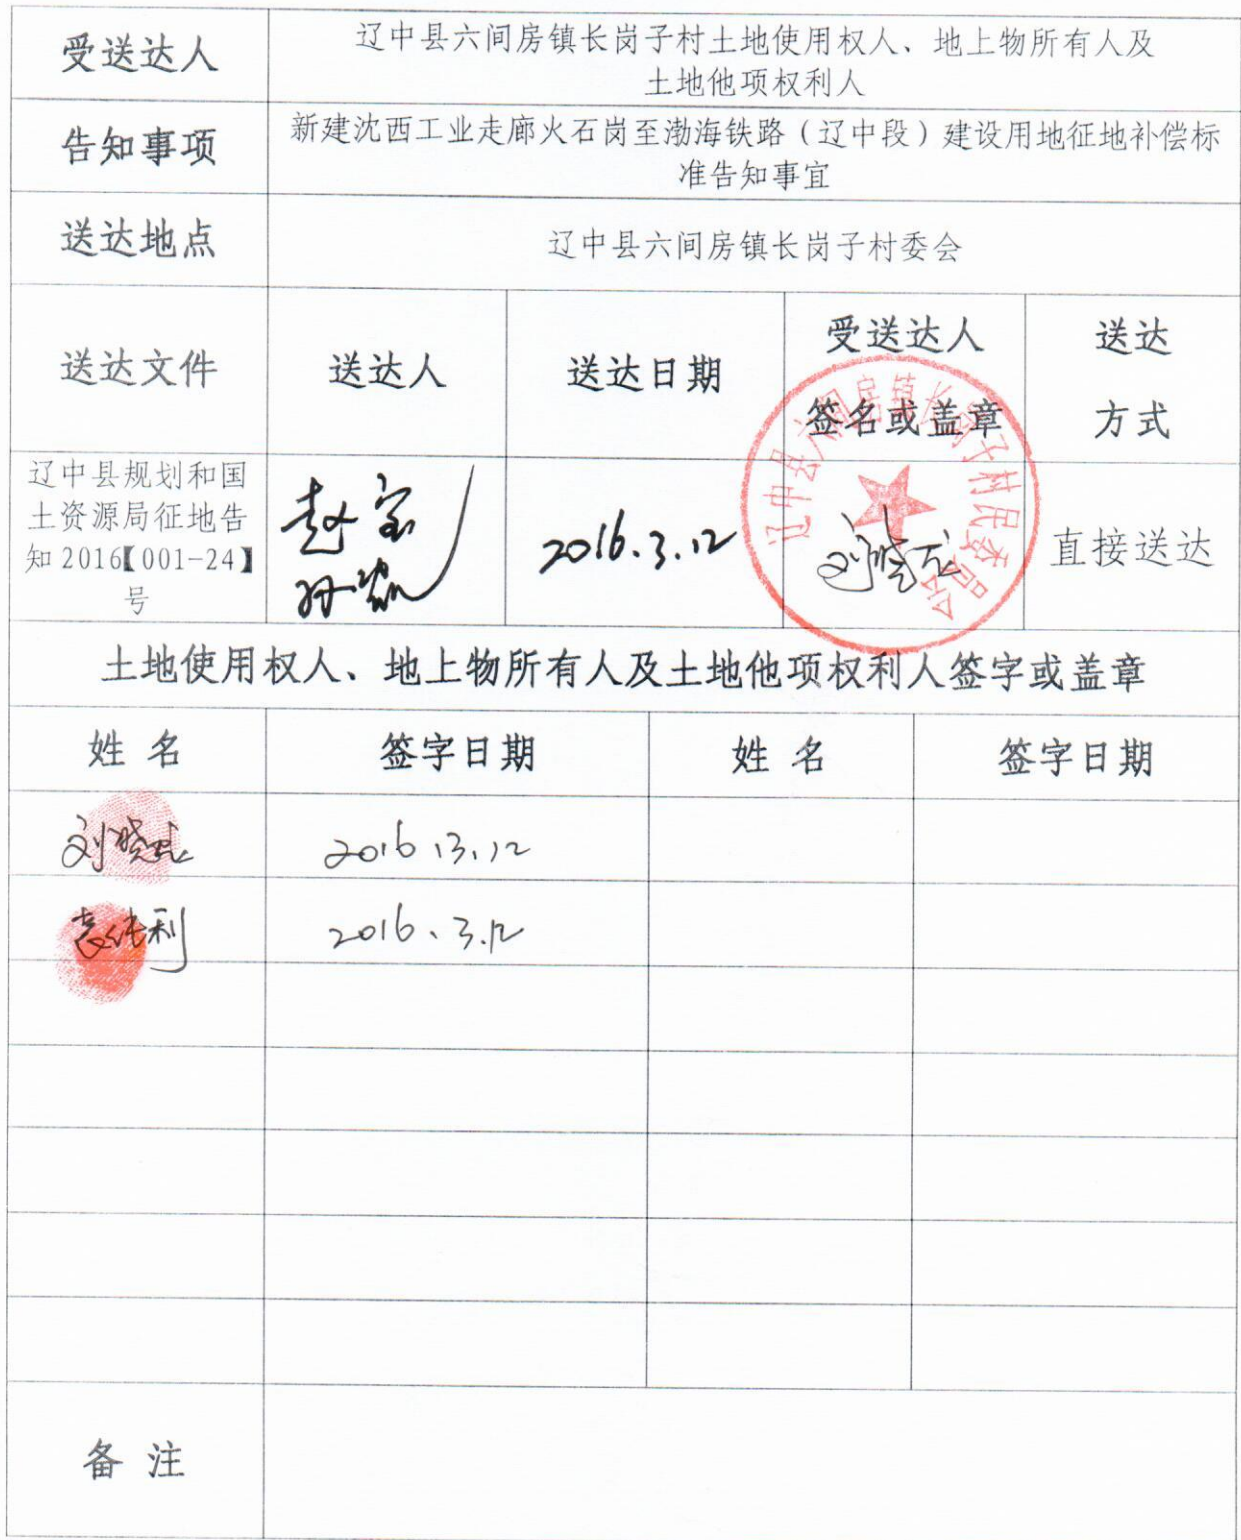 受送达人
辽中县六间房镇长岗子村土地使用权人、地上物所有人及
土地他项权利人
告知事项
新建沈西工业走廊火石岗至渤海铁路(辽中段)建设用地征地补偿标
准告知事宜
送达地点
辽中县六间房镇长岗子村委会
送达文件
送达人
送达日期
受送达人
签名或盖章
送达
方式
辽中县规划和国
土资源局征地告
知2016【001-24】
号
2016.3.12
辽中县六间房镇长岗子村民委员会
直接送达
土地使用权人、地上物所有人及土地他项权利人签字或盖章
姓 名
签字日期
姓 名
签字日期
2016.3.12
2016.3.12
备 注